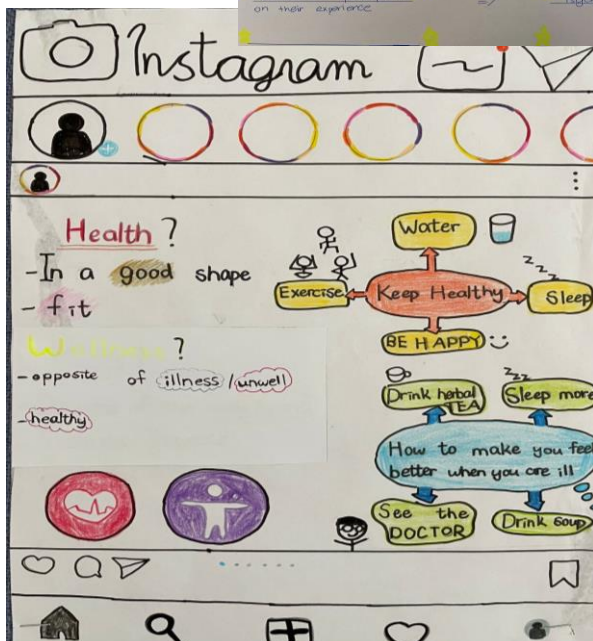 on their experience
Instagram
Health ?
- In a good shape
- fit
Wellness ?
- opposite of illness / unwell
- healthy
Water
Exercise
Keep Healthy
zzz
Sleep
BE HAPPY
Drink herbal
TEA
zzz
Sleep more
How to make you feel
better when you are ill
See the
DOCTOR
Drink soup